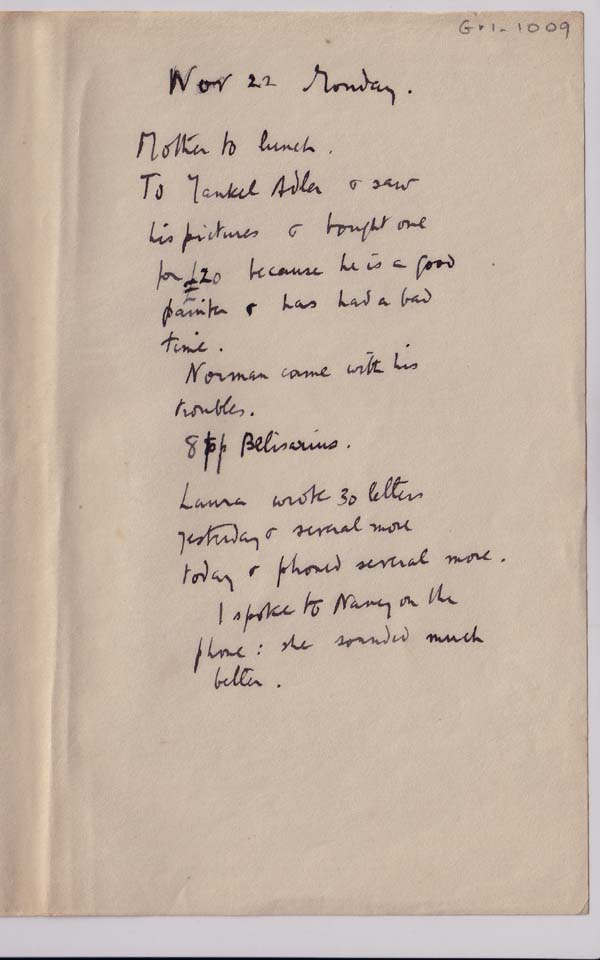 Gr1-1009
Nov 22 Monday.
Mother to lunch.
To Jankel Adler & saw
his pictures & bought one
for £20 because he is a good
painter & has had a bad
time.
Norman came with his
troubles.
8 pp Belisarius.
Laura wrote 30 letters
yesterday & several more
today & phoned several more.
I spoke to Nancy on the
phone: she sounded much
better.